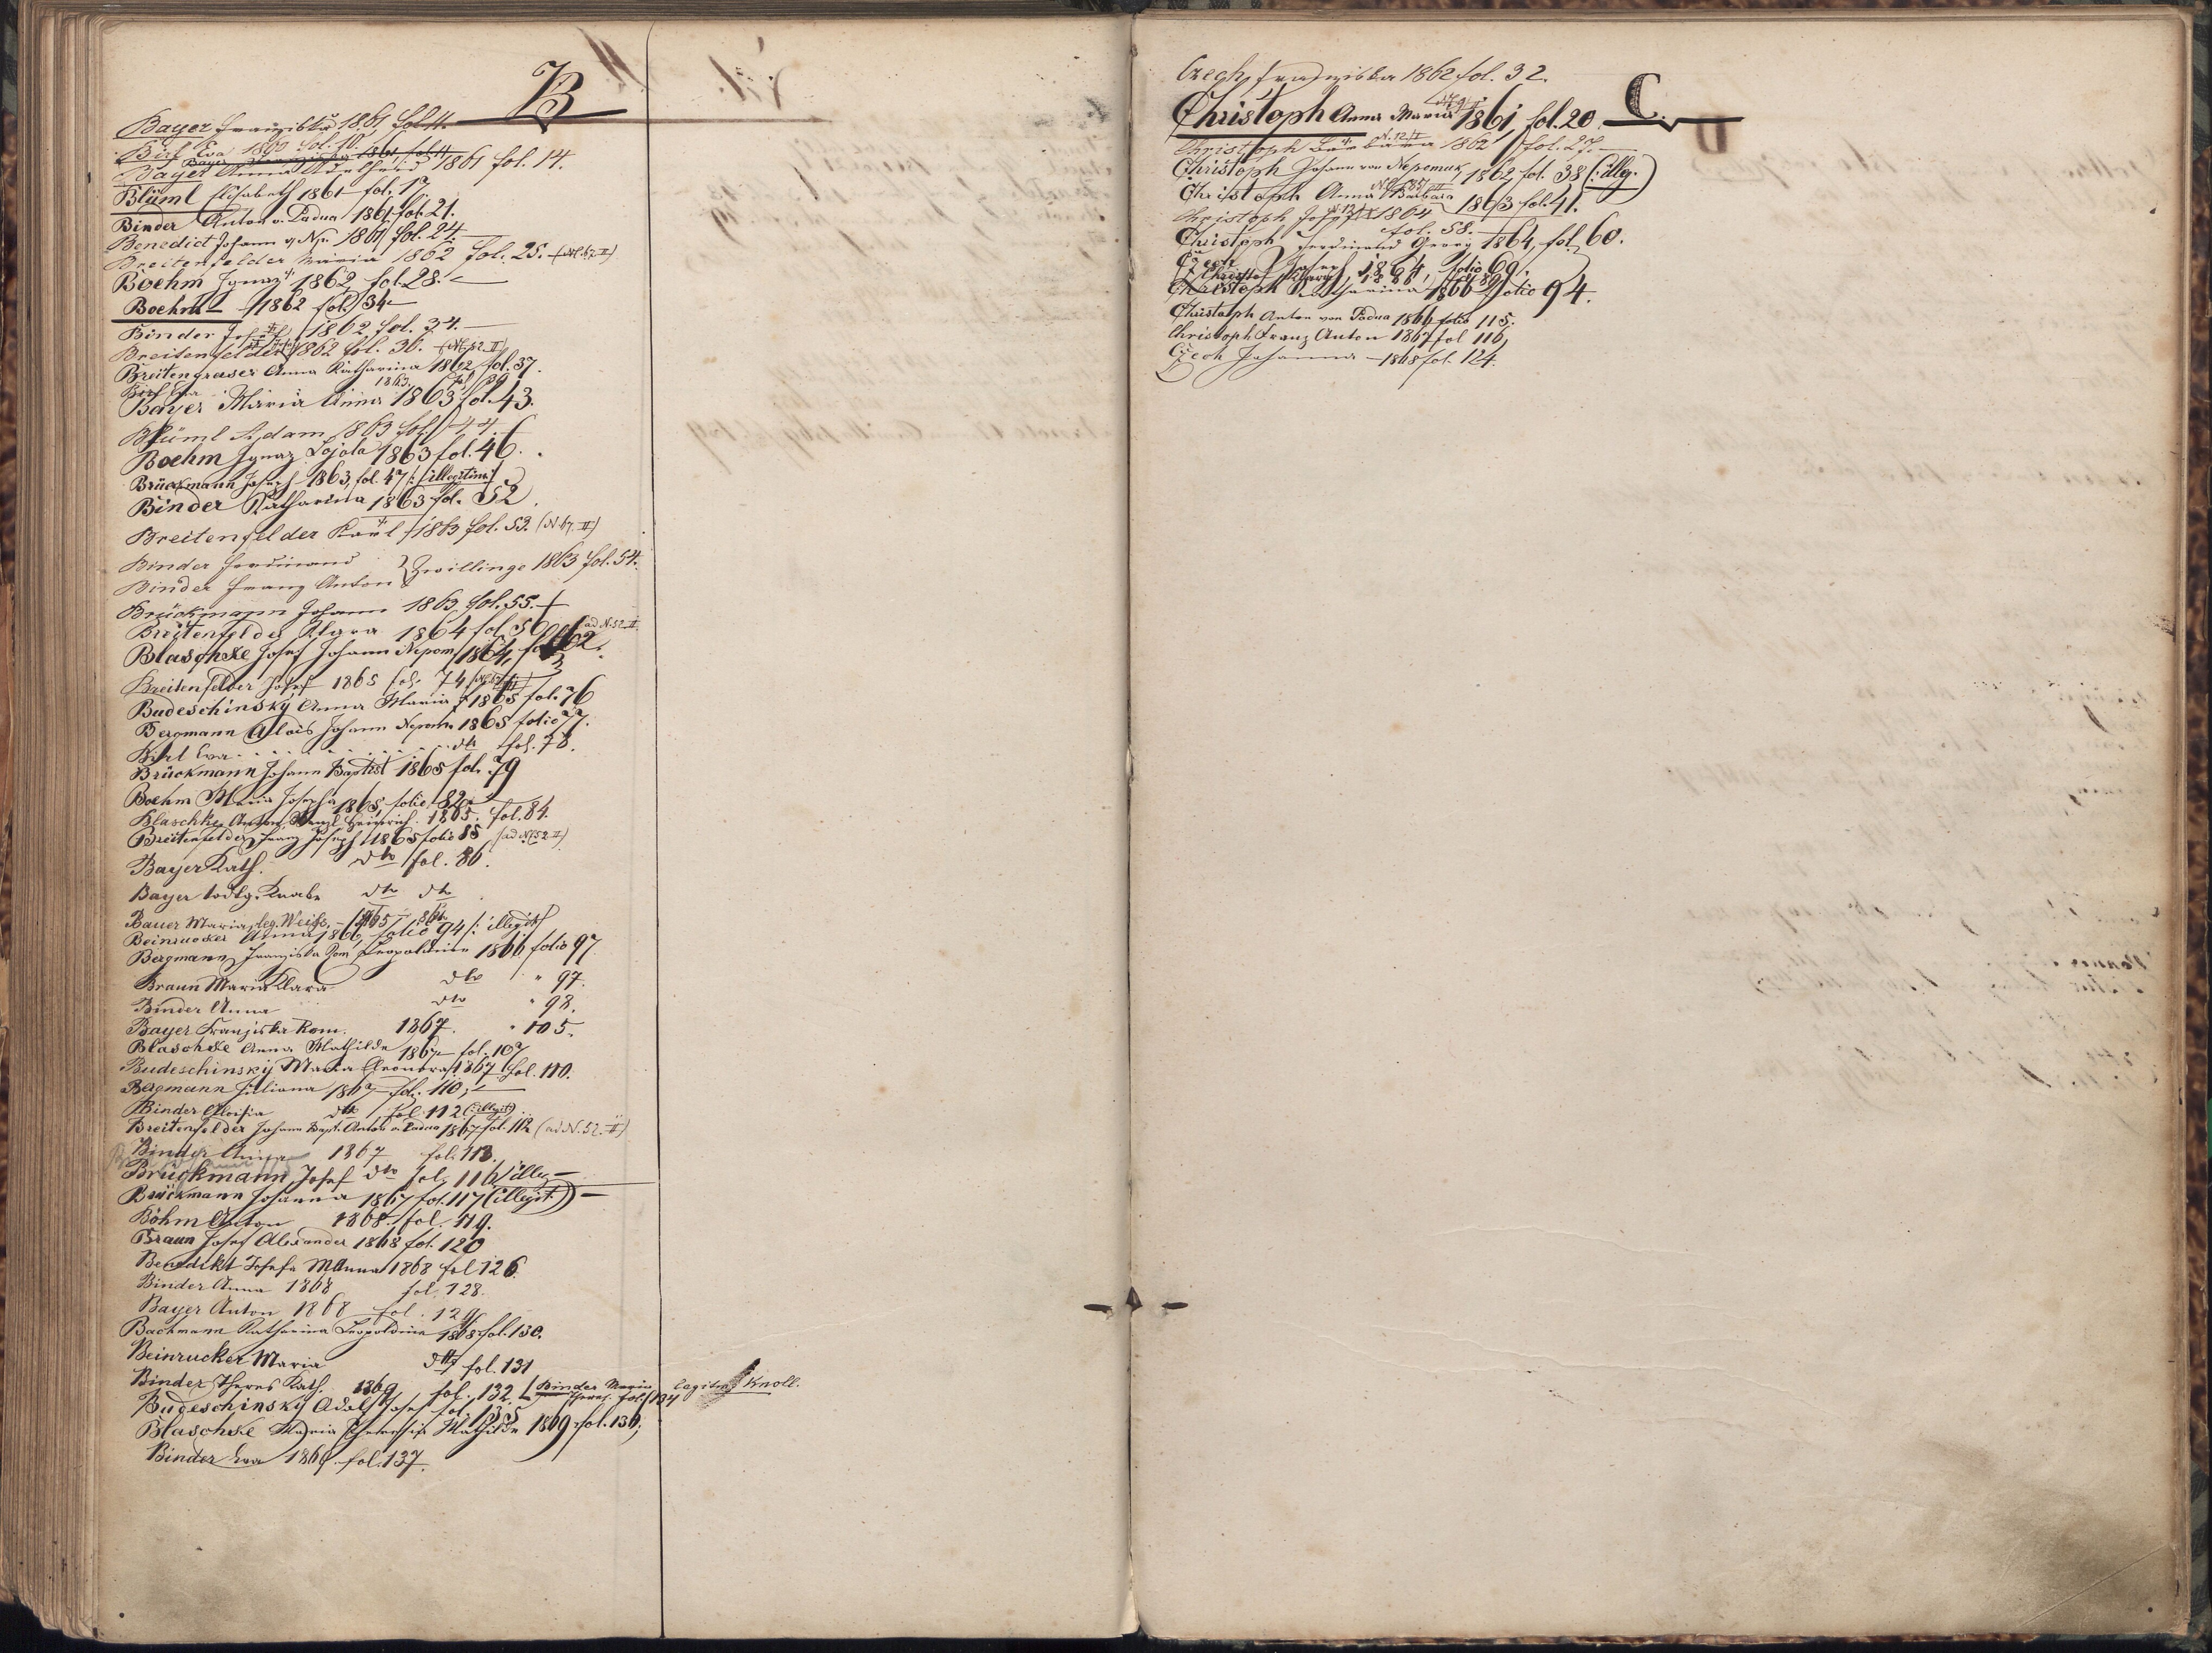 B
Bayer Franziska 1861 fol 11.
Birf Eva 1860 fol. 10.
Bayer Franziska 1861 fol. 11
Bayer Anna Adelheid 1861 fol. 14.
Blüml Elisabeth 1861 fol. 17.
Binder Anton v. Padua 1861 fol. 21.
Benedict Johann v. Np. 1861 fol. 24.
Breitenfelder Maria 1862 fol. 25.
Boehm Ignaz 1862 fol. 28.
Boehm 1862 fol. 34
Binder Josef 1862 fol. 34.
Breitenfelder 1862 fol. 36. (N. 52. II)
Breitengraser Anna Katharina 1862 fol. 37.
Eva 1863
Bayer Maria Anna 1863 fol. 43.
Blüml Adam 1863 fol. 44.
Boehm Ignaz Lojola 1863 fol. 46.
Brückmann Joseph 1863, fol. 47 /: illegitim :/
Binder Katharina 1863 fol. 52.
Breitenfelder Karl 1863 fol. 53. (N. 67. II)
Binder Ferdinand
Binder Franz Anton } Zwillinge 1863 fol. 54.
Brückmann Johann 1863 fol. 55.
Breitenfelder Klara 1864 fol. 56 (ad N. 52. II.
Blaschke Josef Johann Nepom. 1864, fol. 62.
Breitenfelder Josef 1865 fol. 74
Budeschinsky Anna Maria 1865 fol. 76
Bergmann Alois Johann Nepom. 1865 folio 77.
Eva dto fol. 78.
Brückmann Johann Baptist 1865 fol. 79
Boehm Maria Josepha 1865 folio 82
Blaschke Anton Wenzl Heinrich 1865. fol. 84.
Breitenfelder Franz Joseph 1865 folio 85 (ad N. 52. II)
Bayer Kath. dto fol. 86.
Bayer todtg. Knabe dto dto
Bauer Maria
Beinrucker Anna 1866 folio 94 /: illegit :/
Bergmann Franziska Rom. Leopoldine 1866 folio 97
Braun Maria Klara dto " 97.
Binder Anna dto " 98.
Bayer Franziska Rom. 1867. " 105.
Blaschke Anna Mathilde 1867 fol. 107
Budeschinsky Maria Eleonora 1867 fol. 110.
Bergmann Juliana 1867 fol. 110,
Binder Aloisia dto fol. 112 (: illegit :)
Breitenfelder Johann Bapt. Anton v. Padua 1867 fol. 112 (ad N. 52. II)
Binder Anna 1867 fol. 113.
Brückmann Josef dto fol. 116 / illeg
Brückmann Johanna 1867 fol. 117 (illegit.)
Böhm Anton 1868 fol. 119.
Braun Josef Alexander 1868 fol. 120
Benedikt Josefa M Anna 1868 fol 126.
Binder Anna 1868 fol. 128.
Bayer Anton 1868 fol. 129
Bachmann Katharina Leopoldine 1868 fol. 130.
Beinrucker Maria dto fol. 131
Binder Theres Kath. 1869 fol. 132. Binder Maria Theres. fol. 134 legitim Knoll.
Budeschinsky Adolf Josef fol. 135
Blaschke Maria Theresia Mathilde 1869 fol. 136,
Binder Eva 1869 fol. 137.
C.
Czech Franziska 1862 fol. 32.
Christoph Anna Maria 1861 fol. 20
Christoph Barbara 1862 fol. 27.
Christoph Johann von Nepomuk 1862 fol. 38 (: illeg. )
Christoph Anna Barbara 1863 fol. 41.
Christoph Josef 1864 fol. 58.
Christoph Ferdinand Georg 1864, fol. 60.
Czech Joseph 1864, folio 69.
Christoph Katharina 1866 folio 94.
Christoph Anton von Padua 1866 folio 115.
Christoph Franz Anton 1867 fol 116,
Czech Johanna 1868 fol. 124.